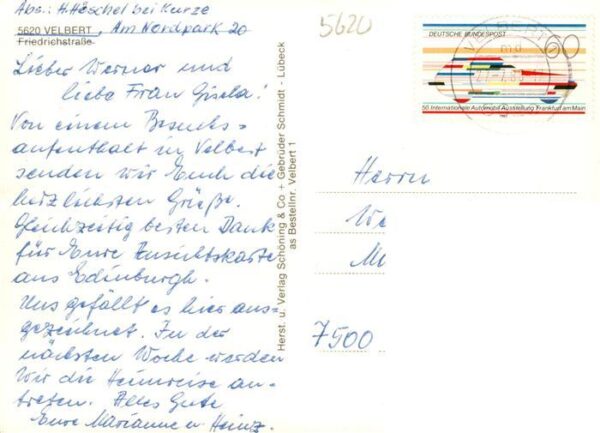 Abs: H. Höschel bei Kurze
5620 VELBERT, Am Nordpark 20
Friedrichstraße
Lieber Werner und
liebe Frau Gisela!
Von einem Besuchs=
aufenthalt in Velbert
senden wir Euch die
herzlichsten Grüße.
Gleichzeitig besten Dank
für Eure Ansichtskarte
aus Edinburgh.
Uns gefällt es hier aus-
gezeichnet. In der
nächsten Woche werden
wir die Heimreise an-
treten. Alles Gute
Eure Marianne u. Heinz.
Herst. u. Verlag Schöning & Co + Gebrüder Schmidt - Lübeck
as Bestellnr. Velbert 1
5620
DEUTSCHE BUNDESPOST
60
50 Internationale Automobil-Ausstellung Frankfurt am Main
Herrn
We
M
7500